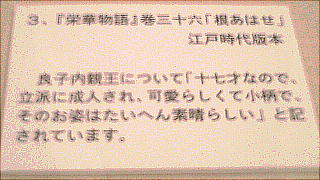 3、『栄華物語』巻三十六「根あはせ」
江戸時代版本
良子内親王について「十七才なので、
立派に成人され、可愛らしくて小柄で、
そのお姿はたいへん素晴らしい」と記
されています。